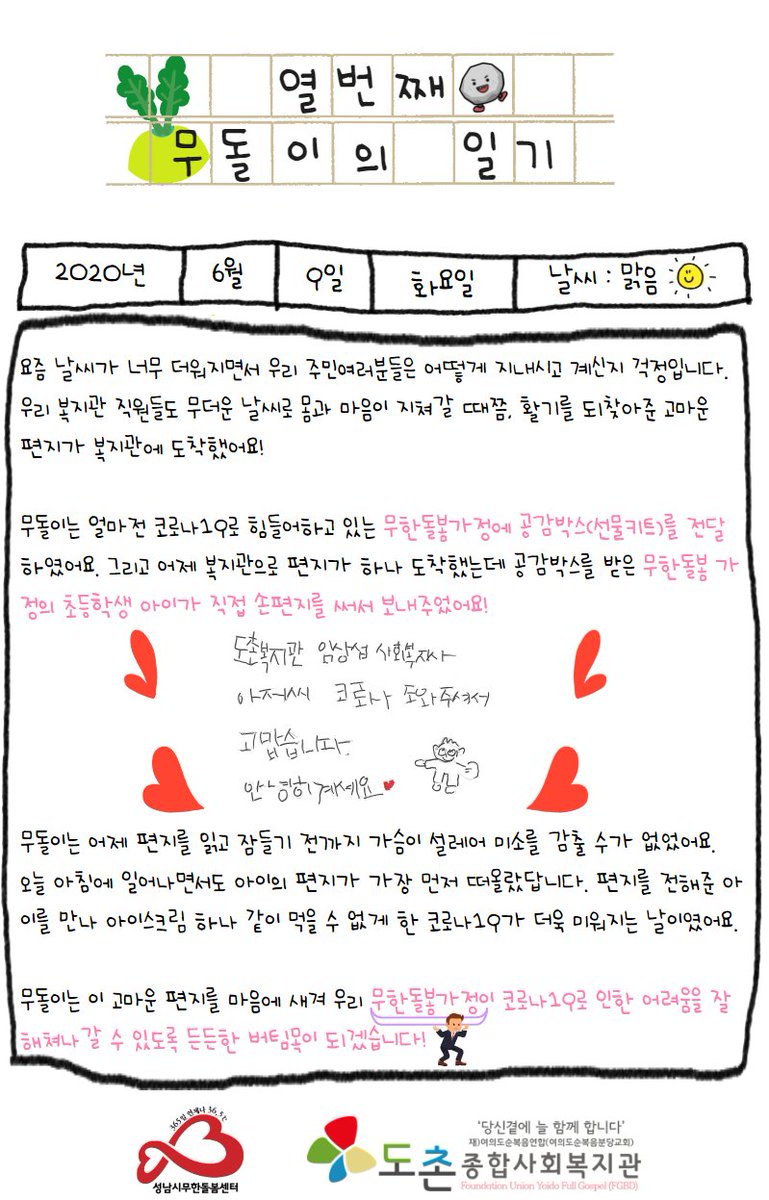 열번째
무돌이의 일기
2020년 6월 9일 화요일 날씨 : 맑음
요즘 날씨가 너무 더워지면서 우리 주민여러분들은 어떻게 지내시고 계신지 걱정입니다.
우리 복지관 직원들도 무더운 날씨로 몸과 마음이 지쳐갈 때쯤, 활기를 되찾아준 고마운
편지가 복지관에 도착했어요!
무돌이는 얼마전 코로나19로 힘들어하고 있는 무한돌봄가정에 공감박스(선물키트)를 전달
하였어요. 그리고 어제 복지관으로 편지가 하나 도착했는데 공감박스를 받은 무한돌봄 가
정의 초등학생 아이가 직접 손편지를 써서 보내주었어요!
도촌복지관 임상섭 사회복지사
아저씨 코로나 도와주셔서
고맙습니다.
안녕히계세요
무돌이는 어제 편지를 읽고 잠들기 전까지 가슴이 설레어 미소를 감출 수가 없었어요.
오늘 아침에 일어나면서도 아이의 편지가 가장 먼저 떠올랐답니다. 편지를 전해준 아
이를 만나 아이스크림 하나 같이 먹을 수 없게 한 코로나19가 더욱 미워지는 날이였어요.
무돌이는 이 고마운 편지를 마음에 새겨 우리 무한돌봄가정이 코로나19로 인한 어려움을 잘
해쳐나갈 수 있도록 든든한 버팀목이 되겠습니다!
365일 언제나 36.5°
성남시무한돌봄센터
'당신곁에 늘 함께 합니다'
재)여의도순복음연합(여의도순복음분당교회)
도촌종합사회복지관
Foundation Union Yoido Full Gospel (FGBD)